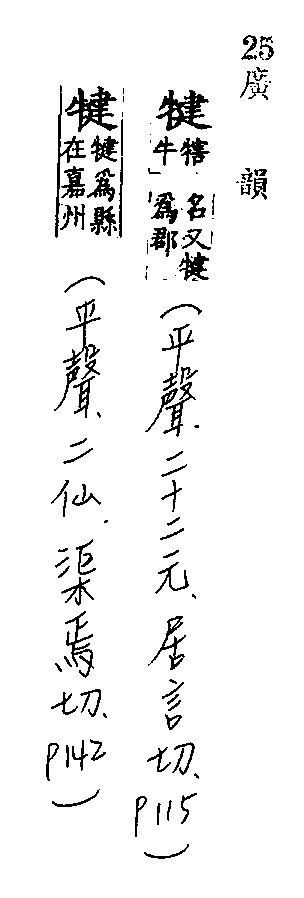 25 廣韻
犍 犗牛名又犍爲郡 (平聲、二十二元、居言切、P115)
犍 犍爲縣在嘉州 (平聲、二仙、渠焉切、P142)